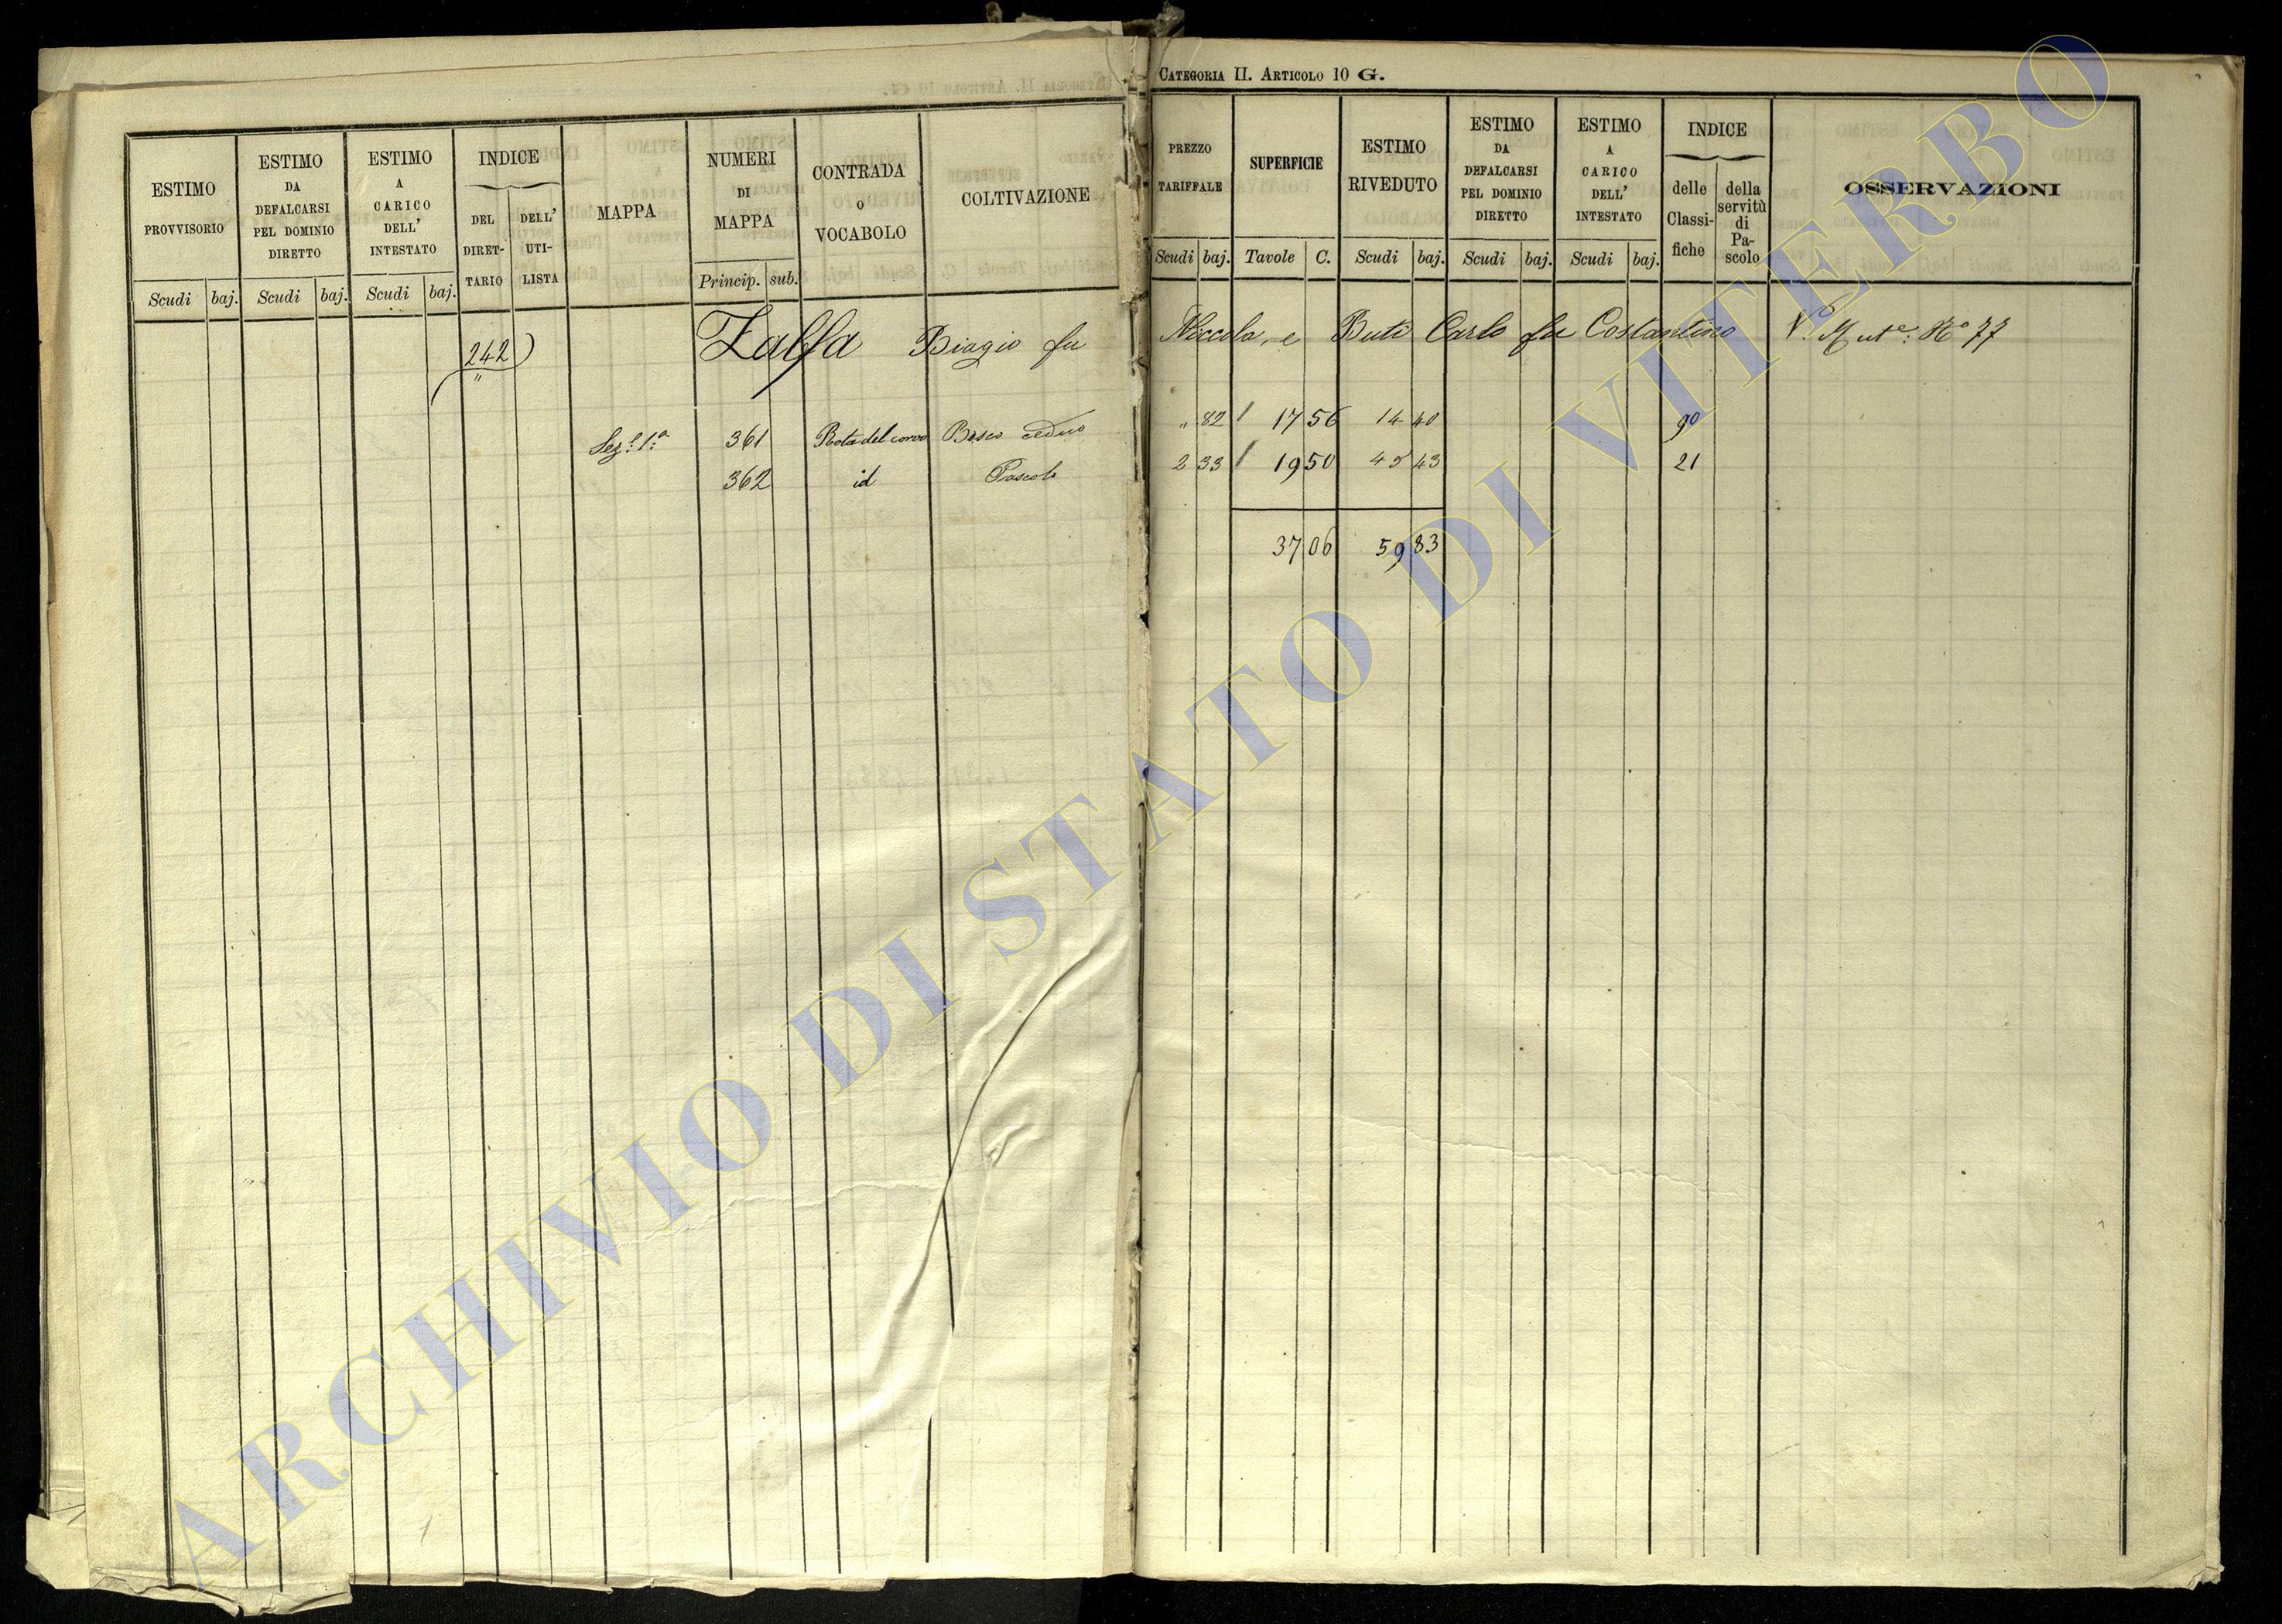 CATEGORIA II. ARTICOLO 10 G.
ESTIMO PROVVISORIO
Scudi baj.
ESTIMO DA DEFALCARSI PEL DOMINIO DIRETTO
Scudi baj.
ESTIMO A CARICO DELL' INTESTATO
Scudi baj.
INDICE
DEL DIRET-
TARIO
DELL' UTI-
LISTA
MAPPA
NUMERI DI MAPPA
Princip. sub.
CONTRADA O VOCABOLO
COLTIVAZIONE
PREZZO TARIFFALE
Scudi baj.
SUPERFICIE
Tavole C.
ESTIMO RIVEDUTO
Scudi baj.
ESTIMO DA DEFALCARSI PEL DOMINIO DIRETTO
Scudi baj.
ESTIMO A CARICO DELL' INTESTATO
Scudi baj.
INDICE
delle Classi-
fiche
della servitù di Pa-
scolo
OSSERVAZIONI
242 Zalfa Biagio fu Niccola, e Buti Carlo fu Costantino V. Mut.e: N.o 77
"
Sez.e 1.a 361 Rota del corvo Bosco ceduo " 82 17 56 14 40 90
362 id Pascolo 2 33 19 50 45 43 21
37 06 59 83
ARCHIVIO DI STATO DI VITERBO